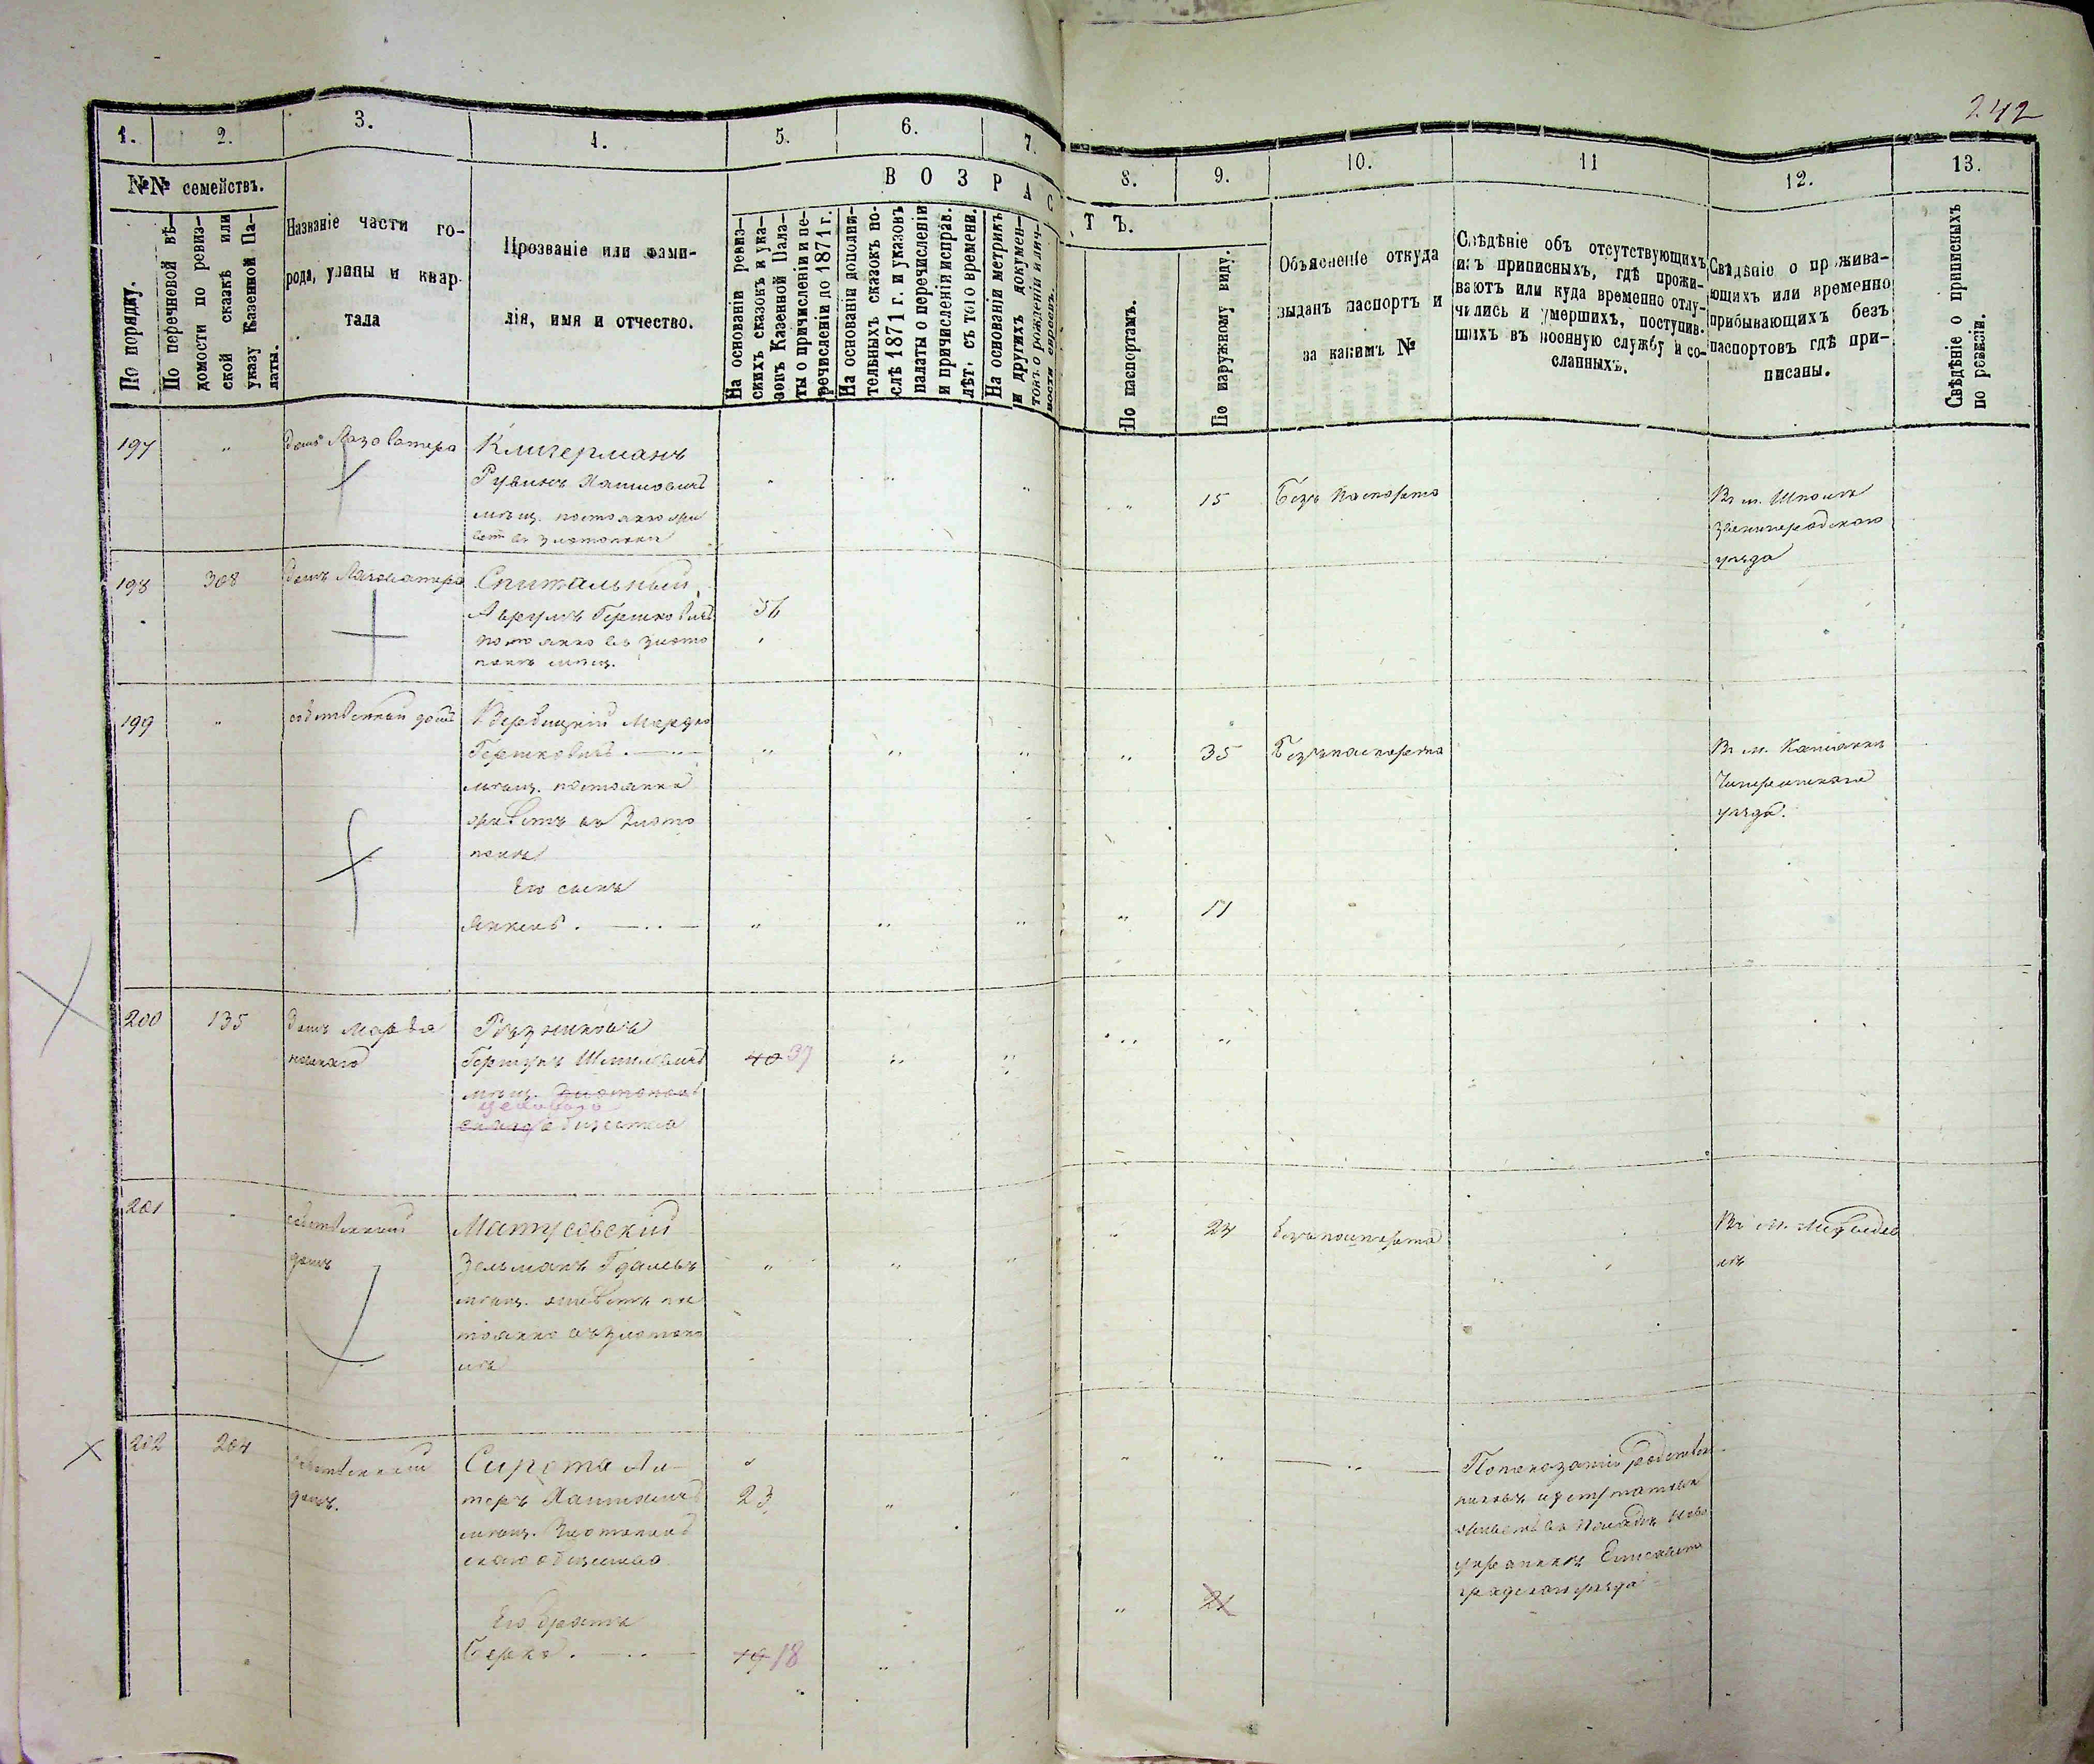 242
1. 2. 3. 4. 5. 6. 7. 8. 9. 10. 11 12. 13.
№№ семействъ.
По порядку.
По перечневой вѣ-
домости по ревиз-
ской сказкѣ или
указу Казенной Па-
латы.
Названіе части го-
рода, улицы и квар-
тала
Прозваніе или фами-
лія, имя и отчество.
ВОЗРАСТЪ.
На основаніи ревиз-
скихъ сказокъ и ука-
зовъ Казенной Пала-
ты о причисленіи и пе-
речисленіи до 1871 г.
На основаніи дополни-
тельныхъ сказокъ по-
слѣ 1871 г. и указовъ
палаты о перечисленіи
и причисленіи исправ.
лѣт. съ того времени.
На основаніи метрикъ
и другихъ докумен-
товъ о рожденіи и лич-
ности евреевъ.
По паспортамъ.
По наружному виду.
Объясненіе откуда
выданъ паспортъ и
за какимъ №
Свѣдѣніе объ отсутствующихъ
изъ приписныхъ, гдѣ прожи-
ваютъ или куда временно отлу-
чились и умершихъ, поступив-
шихъ въ военную службу и со-
сланныхъ.
Свѣдѣніе о прожива-
ющихъ или временно
прибывающихъ безъ
паспортовъ гдѣ при-
писаны.
Свѣдѣніе о приписныхъ
по ревизіи.
197 " домъ
Клигерманъ
Рувинъ Хаимовичъ
мѣщ. постоянно жи
ветъ въ Златополи
15 Безъ паспорта
Въ м. Шполѣ
Звенигородскаго
уѣзда
198 308 домъ
Спитальный
Аврумъ Гершковичъ 56
постоянно въ Злато
полѣ мѣщ.
199 " собственный домъ
Вербицкій Мордко
Гершковичъ
мѣщ. постоянно
живетъ въ Злато
полѣ
35 Безъ паспорта
Въ м. Каменкѣ
Чигиринскаго
уѣзда.
Его сынъ
Янкель
11
200 135 домъ
Рѣзниковъ
Гершунъ 40 37
мѣщ. Златополь
скаго общества
201 собственный
домъ
Матусовскій
Зельманъ
мѣщ. живетъ по
стоянно въ Златопо
лѣ
24 Безъ паспорта
Въ м.
202 204 собственный
домъ.
Сирота Ли-
теръ Хаимовичъ 23
мѣщ. Златополь
скаго общества
По показанію родствен
никовъ
живетъ въ Посадѣ Ново
украинкѣ Елисавет
градскаго уѣзда
Его братъ
Берко 19 18
21